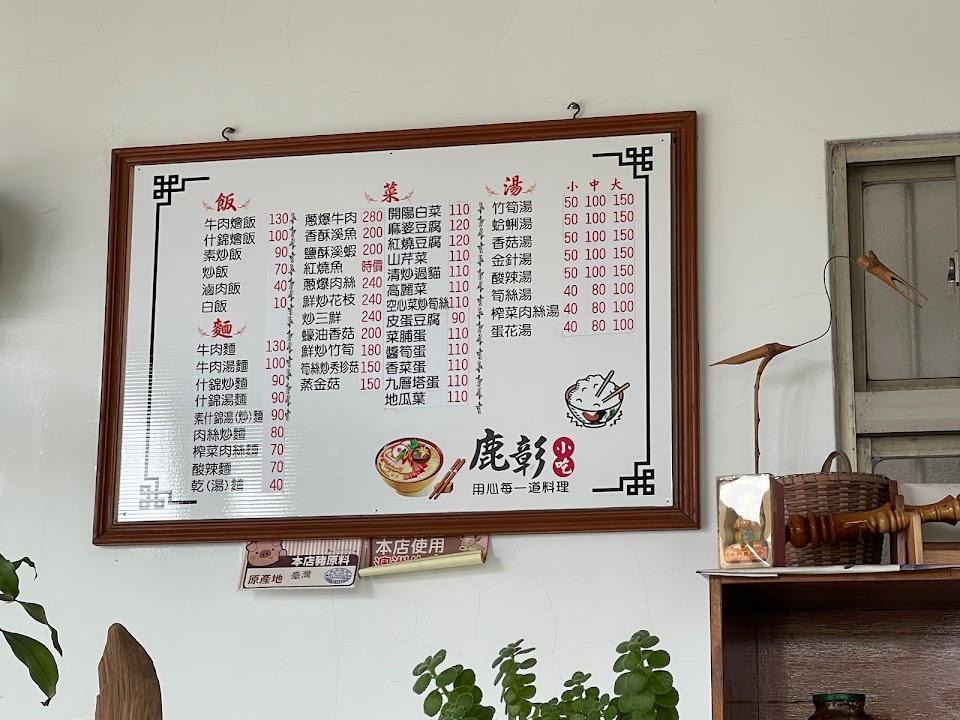 飯
牛肉燴飯 130
什錦燴飯 100
素炒飯 90
炒飯 70
滷肉飯 40
白飯 10
麵
牛肉麵 130
牛肉湯麵 100
什錦炒麵 90
什錦湯麵 90
素什錦湯(炒)麵 90
肉絲炒麵 80
榨菜肉絲麵 70
酸辣麵 70
乾(湯)麵 40
菜
蔥爆牛肉 280
香酥溪魚 200
鹽酥溪蝦 200
紅燒魚 時價
蔥爆肉絲 240
鮮炒花枝 240
炒三鮮 240
蠔油香菇 200
鮮炒竹筍 180
筍絲炒秀珍菇 150
蒸金菇 150
開陽白菜 110
麻婆豆腐 120
紅燒豆腐 120
山芹菜 110
清炒過貓 110
高麗菜 110
空心菜炒筍絲 110
皮蛋豆腐 90
菜脯蛋 110
醬筍蛋 110
香菜蛋 110
九層塔蛋 110
地瓜葉 110
湯 小 中 大
竹筍湯 50 100 150
蛤蜊湯 50 100 150
香菇湯 50 100 150
金針湯 50 100 150
酸辣湯 50 100 150
筍絲湯 40 80 100
榨菜肉絲湯 40 80 100
蛋花湯 40 80 100
鹿彰小吃
用心每一道料理
本店豬原料
原產地 臺灣
本店使用